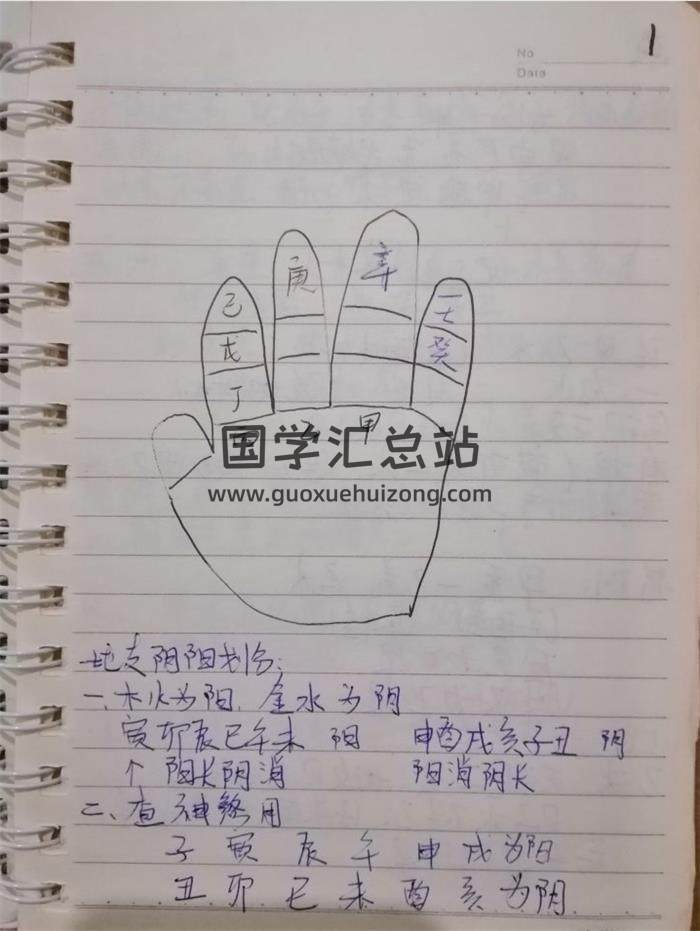 1
No
Date
庚 辛
己 壬
戊 癸
丁
甲
国学汇总站
www.guoxuehuizong.com
地支阴阳划分:
一、木火为阳, 金水为阴
寅卯辰巳午未 阳 申酉戌亥子丑 阴
个 阳长阴消 阳消阴长
二、查神煞用
子 寅 辰 午 申 戌为阳
丑 卯 巳 未 酉 亥 为阴